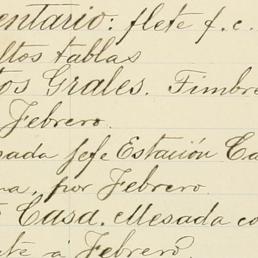 entario: flete f. c.
ltos tablas
tos Grales. Timbre
Febrero.
sada Jefe Estación Ca
na, por Febrero.
Casa. Mesada co
te á Febrero